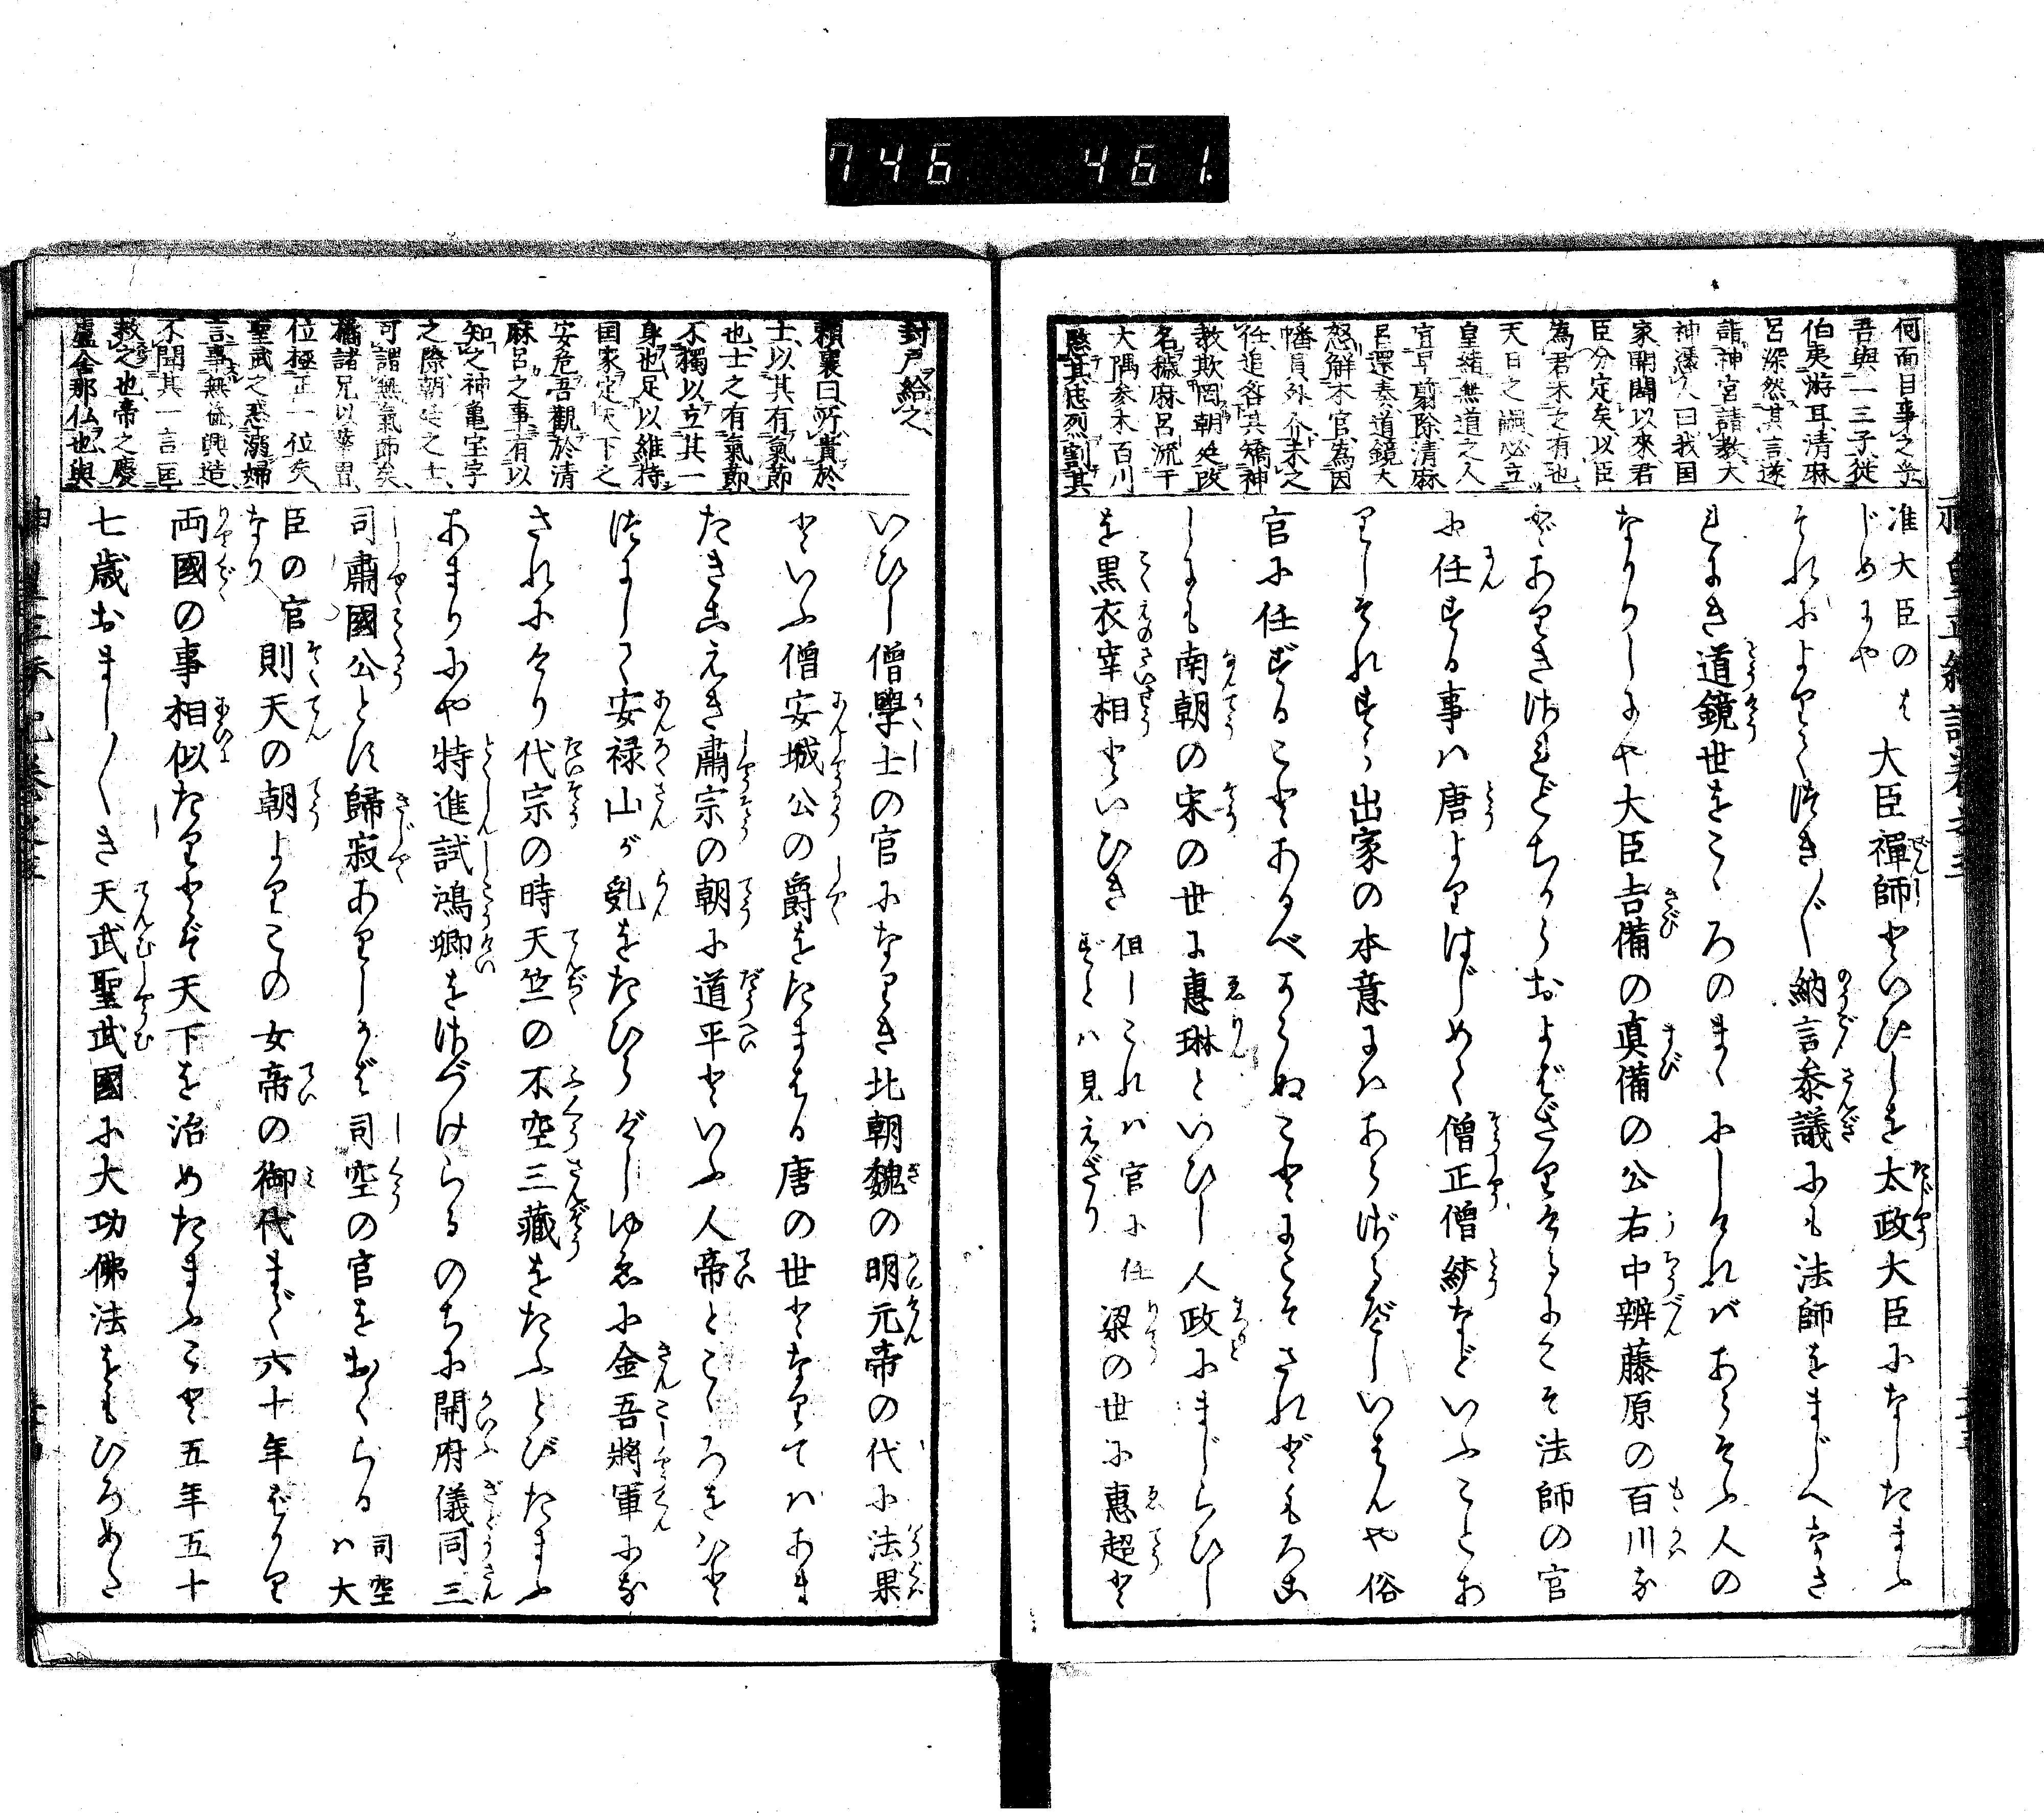 746 461
何面目事之乎
吾與一三子從
伯夷游耳清麻
呂深然其言遂
詣神宮請教大
神憑人曰我国
家開闢以來君
臣分定矣以臣
為君未之有也
天日之嗣必立
皇緒無道之人
宜早翦除清麻
呂還奏道鏡大
怒解本官為因
幡員外介未之
任追咎其矯神
教欺罔朝廷改
名穢麻呂流于
大隅参木百川
愍其忠烈割其
准大臣のはじめにや
大臣禪師といひしを太政大臣になしたまふ
それによりてつぎ〳〵納言叅議にも法師をまじへなさ
れにき道鏡世をこゝろのまゝにしければあらそふ人の
なかりしにや大臣吉備の真備の公右中辨藤原の百川な
どありきされどちからおよばざりけるにこそ法師の官
に任ずる事ハ唐よりはじめて僧正僧統などいふことあ
りしそれすら出家の本意にハあらざるべしいはんや俗
官に任ずることあるべからぬことにこそされどもろこ
しにも南朝の宋の世に惠琳といひし人政にまじらひし
を黒衣宰相といひき
但しこれハ官に任ずとハ見えざり
梁の世に惠超と
封戸給之
頼襄曰所貴於
士以其有氣節
也士之有氣節
不獨以立其一
身也足以維持
国家定天下之
安危吾觀於清
麻呂之事有以
知之神亀宝字
之際朝廷之士
可謂無氣節矣
橘諸兄以華冑
位極正一位矣
聖武之惑溺婦
言專無益興造
不聞其一言匡
救之也帝之慶
盧舍那仏也與
いひし僧學士の官になりき北朝魏の明元帝の代に法果
といふ僧安城公の爵をたまはる唐の世となりてハあま
たきこえき肅宗の朝に道平といふ人帝とこゝろをひと
つにして安禄山が乱をたひらげしゆゑに金吾將軍にな
されにけり代宗の時天竺の不空三藏をたふとびたまふ
あまりにや特進試鴻卿をさづけらるのちに開府儀同三
司肅國公とす歸寂ありしかば司空の官をおくらる
司空ハ大臣の官なり
則天の朝よりこの女帝の御代まで六十年ばかり
両國の事相似たりとぞ天下を治めたまふこと五年五十
七歳おまし〳〵き天武聖武國に大功佛法をもひろめた